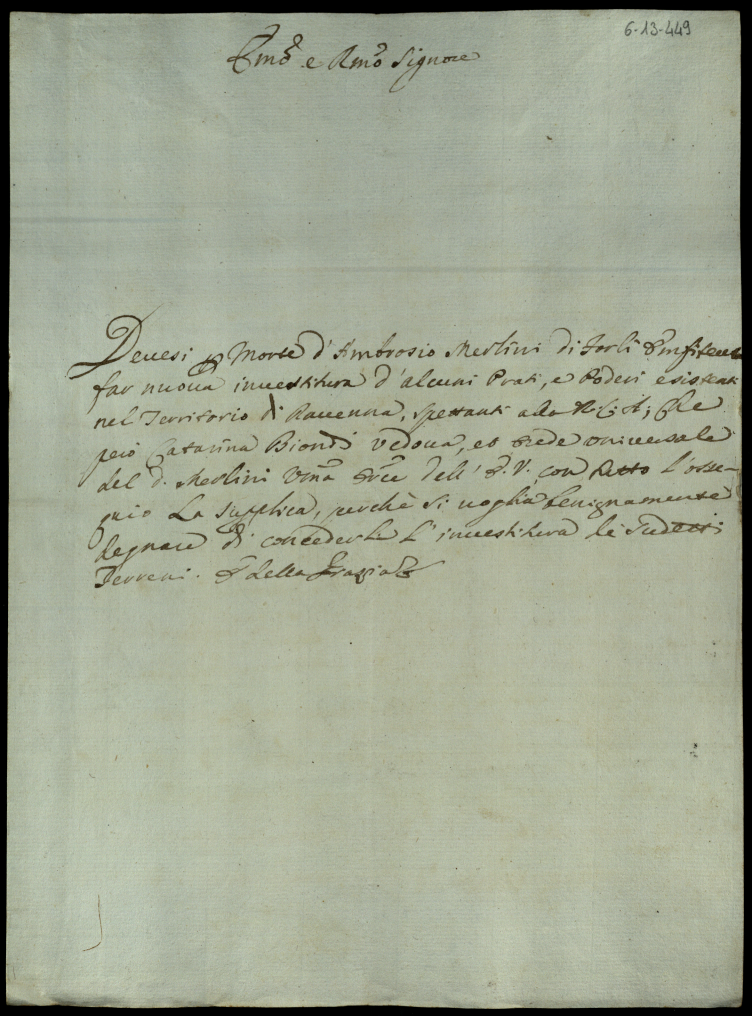 6-13-449
Emo e Rmo Signore
Devesi per Morte d'Ambrosio Merlini di Forlì Emfiteuta
far nuova investitura d'alcuni Prati, e Poderi esistenti
nel Territorio di Ravenna, spettanti alla R. C. A; Che
però Catarina Biondi vedova, et Erede universale
del d. Merlini Uma dell' E. V. con tutto l'osse-
quio La supplica, perchè si voglia benignamente
degnare di concederle l'investitura de sudetti
Terreni. E della Grazia